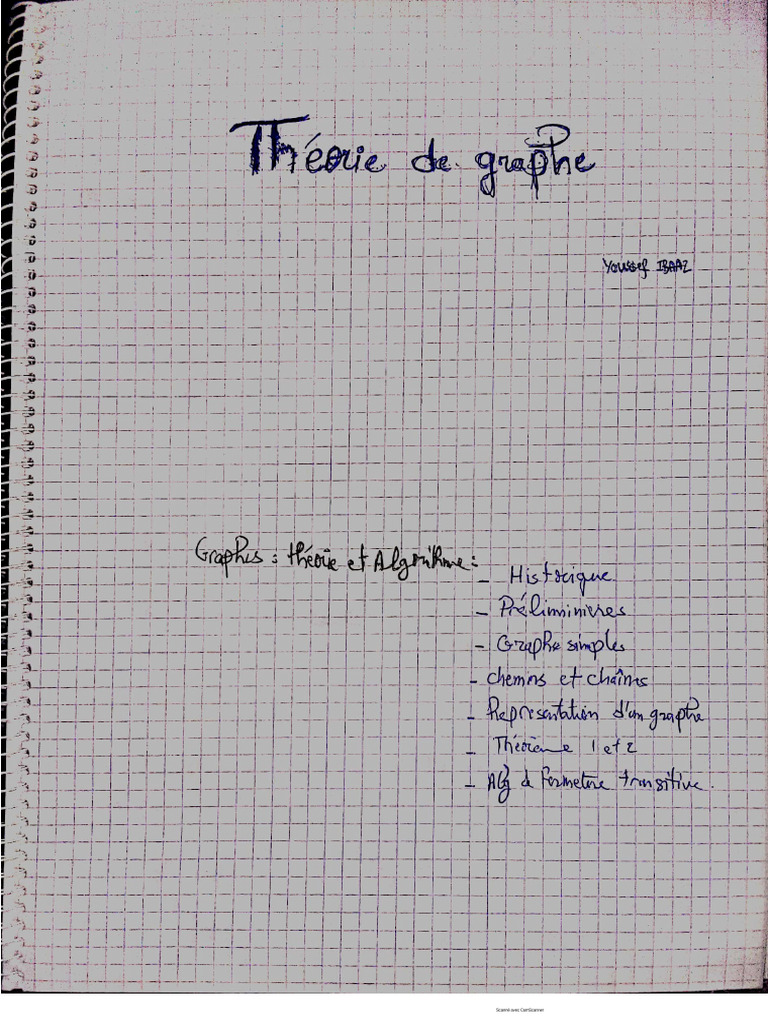 Théorie de graphe
Youssef IBAAZ
Graphes : théorie et Algorithme :
- Historique
- Préliminieres
- Graphe simples
- chemins et chaînes
- Représentation d'un graphe
- Théorème 1 et 2
- Alg de fermeture transitive.
Scanné avec CamScanner